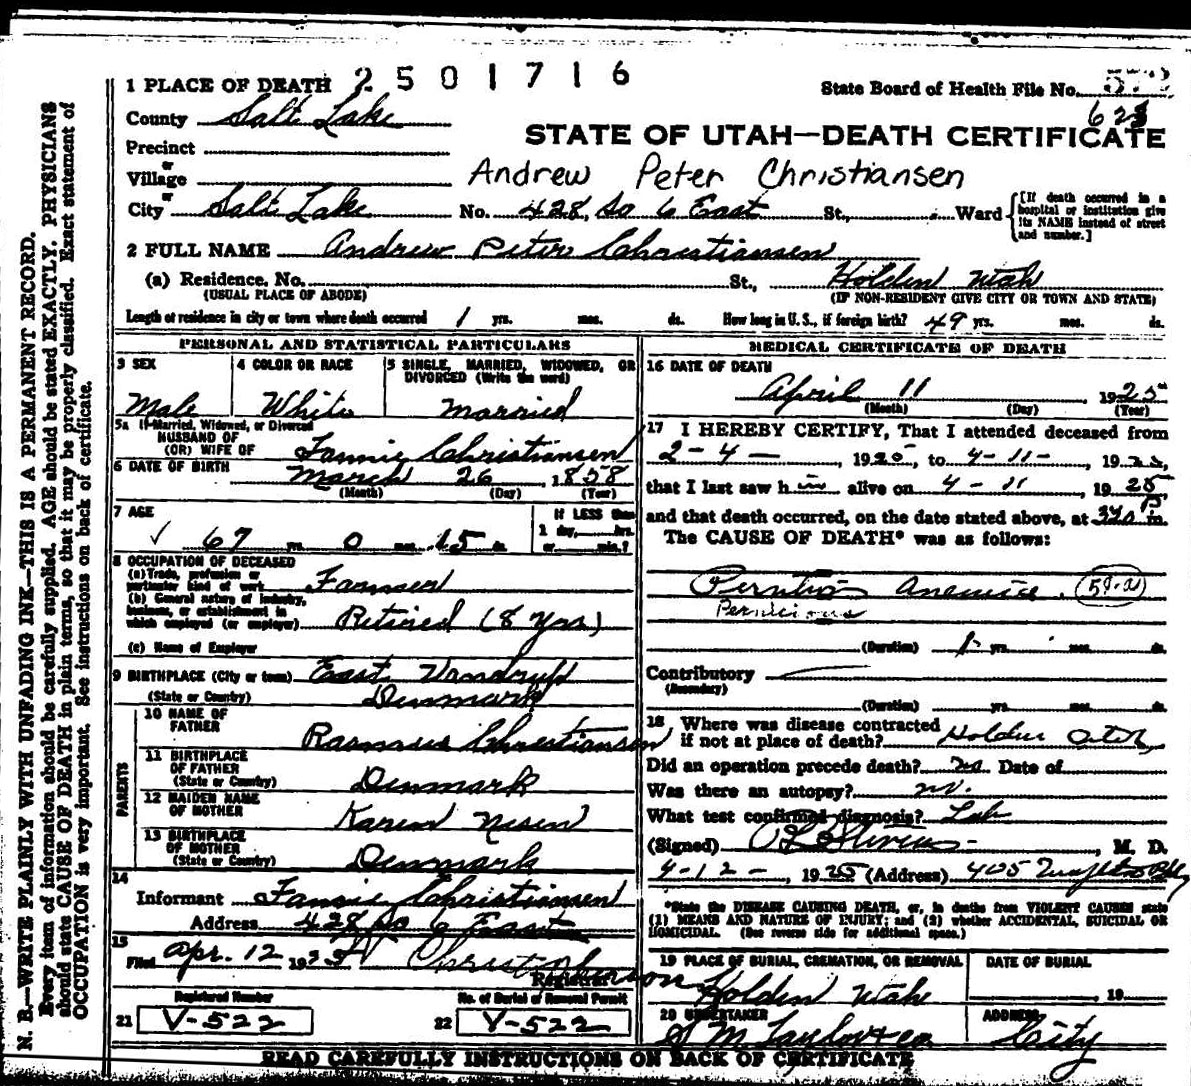 1 PLACE OF DEATH 2501716
State Board of Health File No.
County Salt Lake
628
STATE OF UTAH—DEATH CERTIFICATE
Precinct
or
Village
Andrew Peter Christiansen
or
City Salt Lake No. 428, So 6 East St., Ward
[If death occurred in a hospital or institution give its NAME instead of street and number.]
2 FULL NAME Andrew Peter Christiansen
(a) Residence, No. St., Holden Utah
(USUAL PLACE OF ABODE) (IF NON-RESIDENT GIVE CITY OR TOWN AND STATE)
Length of residence in city or town where death occurred 1 yrs. mos. ds. How long in U. S., if foreign birth? 49 yrs. mos. ds.
PERSONAL AND STATISTICAL PARTICULARS
3 SEX 4 COLOR OR RACE 5 SINGLE, MARRIED, WIDOWED, OR DIVORCED (Write the word)
Male White Married
5a If Married, Widowed, or Divorced
HUSBAND OF
(OR) WIFE OF Fannie Christiansen
6 DATE OF BIRTH March 26, 1858
(Month) (Day) (Year)
7 AGE If LESS than
1 day, hrs.
67 yrs. 0 mos. 15 ds. or min.?
8 OCCUPATION OF DECEASED
(a) Trade, profession or
particular kind of work Farmer
(b) General nature of industry,
business, or establishment in
which employed (or employer) Retired (8 Yrs)
(c) Name of Employer
9 BIRTHPLACE (City or town) East
(State or Country) Denmark
PARENTS
10 NAME OF
FATHER Rasmus Christiansen
11 BIRTHPLACE
OF FATHER
(State or Country) Denmark
12 MAIDEN NAME
OF MOTHER Karen
13 BIRTHPLACE
OF MOTHER
(State or Country) Denmark
14
Informant Fannie Christiansen
Address 428 So 6 East
15
Filed Apr. 12 192
Registrar
Registered Number No. of Burial or Removal Permit
21 V-522 22 V-522
MEDICAL CERTIFICATE OF DEATH
16 DATE OF DEATH
April 11, 1925
(Month) (Day) (Year)
17 I HEREBY CERTIFY, That I attended deceased from
2-4-, 1925, to 4-11-, 1925,
that I last saw him alive on 4-11, 1925
and that death occurred, on the date stated above, at 320 P m.
The CAUSE OF DEATH* was as follows:
Pernicious
(Duration) 1 yrs. mos. ds.
Contributory
(Secondary)
(Duration) yrs. mos. ds.
18 Where was disease contracted
if not at place of death? Holden Utah
Did an operation precede death? no. Date of
Was there an autopsy? no.
What test confirmed diagnosis? Lab
(Signed) , M. D.
4-12-, 1925 (Address) 405
*State the DISEASE CAUSING DEATH, or, in deaths from VIOLENT CAUSES state
(1) MEANS AND NATURE OF INJURY; and (2) whether ACCIDENTAL, SUICIDAL OR
HOMICIDAL. (See reverse side for additional space.)
19 PLACE OF BURIAL, CREMATION, OR REMOVAL DATE OF BURIAL
Holden Utah 19
20 UNDERTAKER ADDRESS
S M Taylor & Co City
READ CAREFULLY INSTRUCTIONS ON BACK OF CERTIFICATE
N. B.—WRITE PLAINLY WITH UNFADING INK—THIS IS A PERMANENT RECORD.
Every item of information should be carefully supplied. AGE should be stated EXACTLY. PHYSICIANS
should state CAUSE OF DEATH in plain terms, so that it may be properly classified. Exact statement of
OCCUPATION is very important. See instructions on back of certificate.